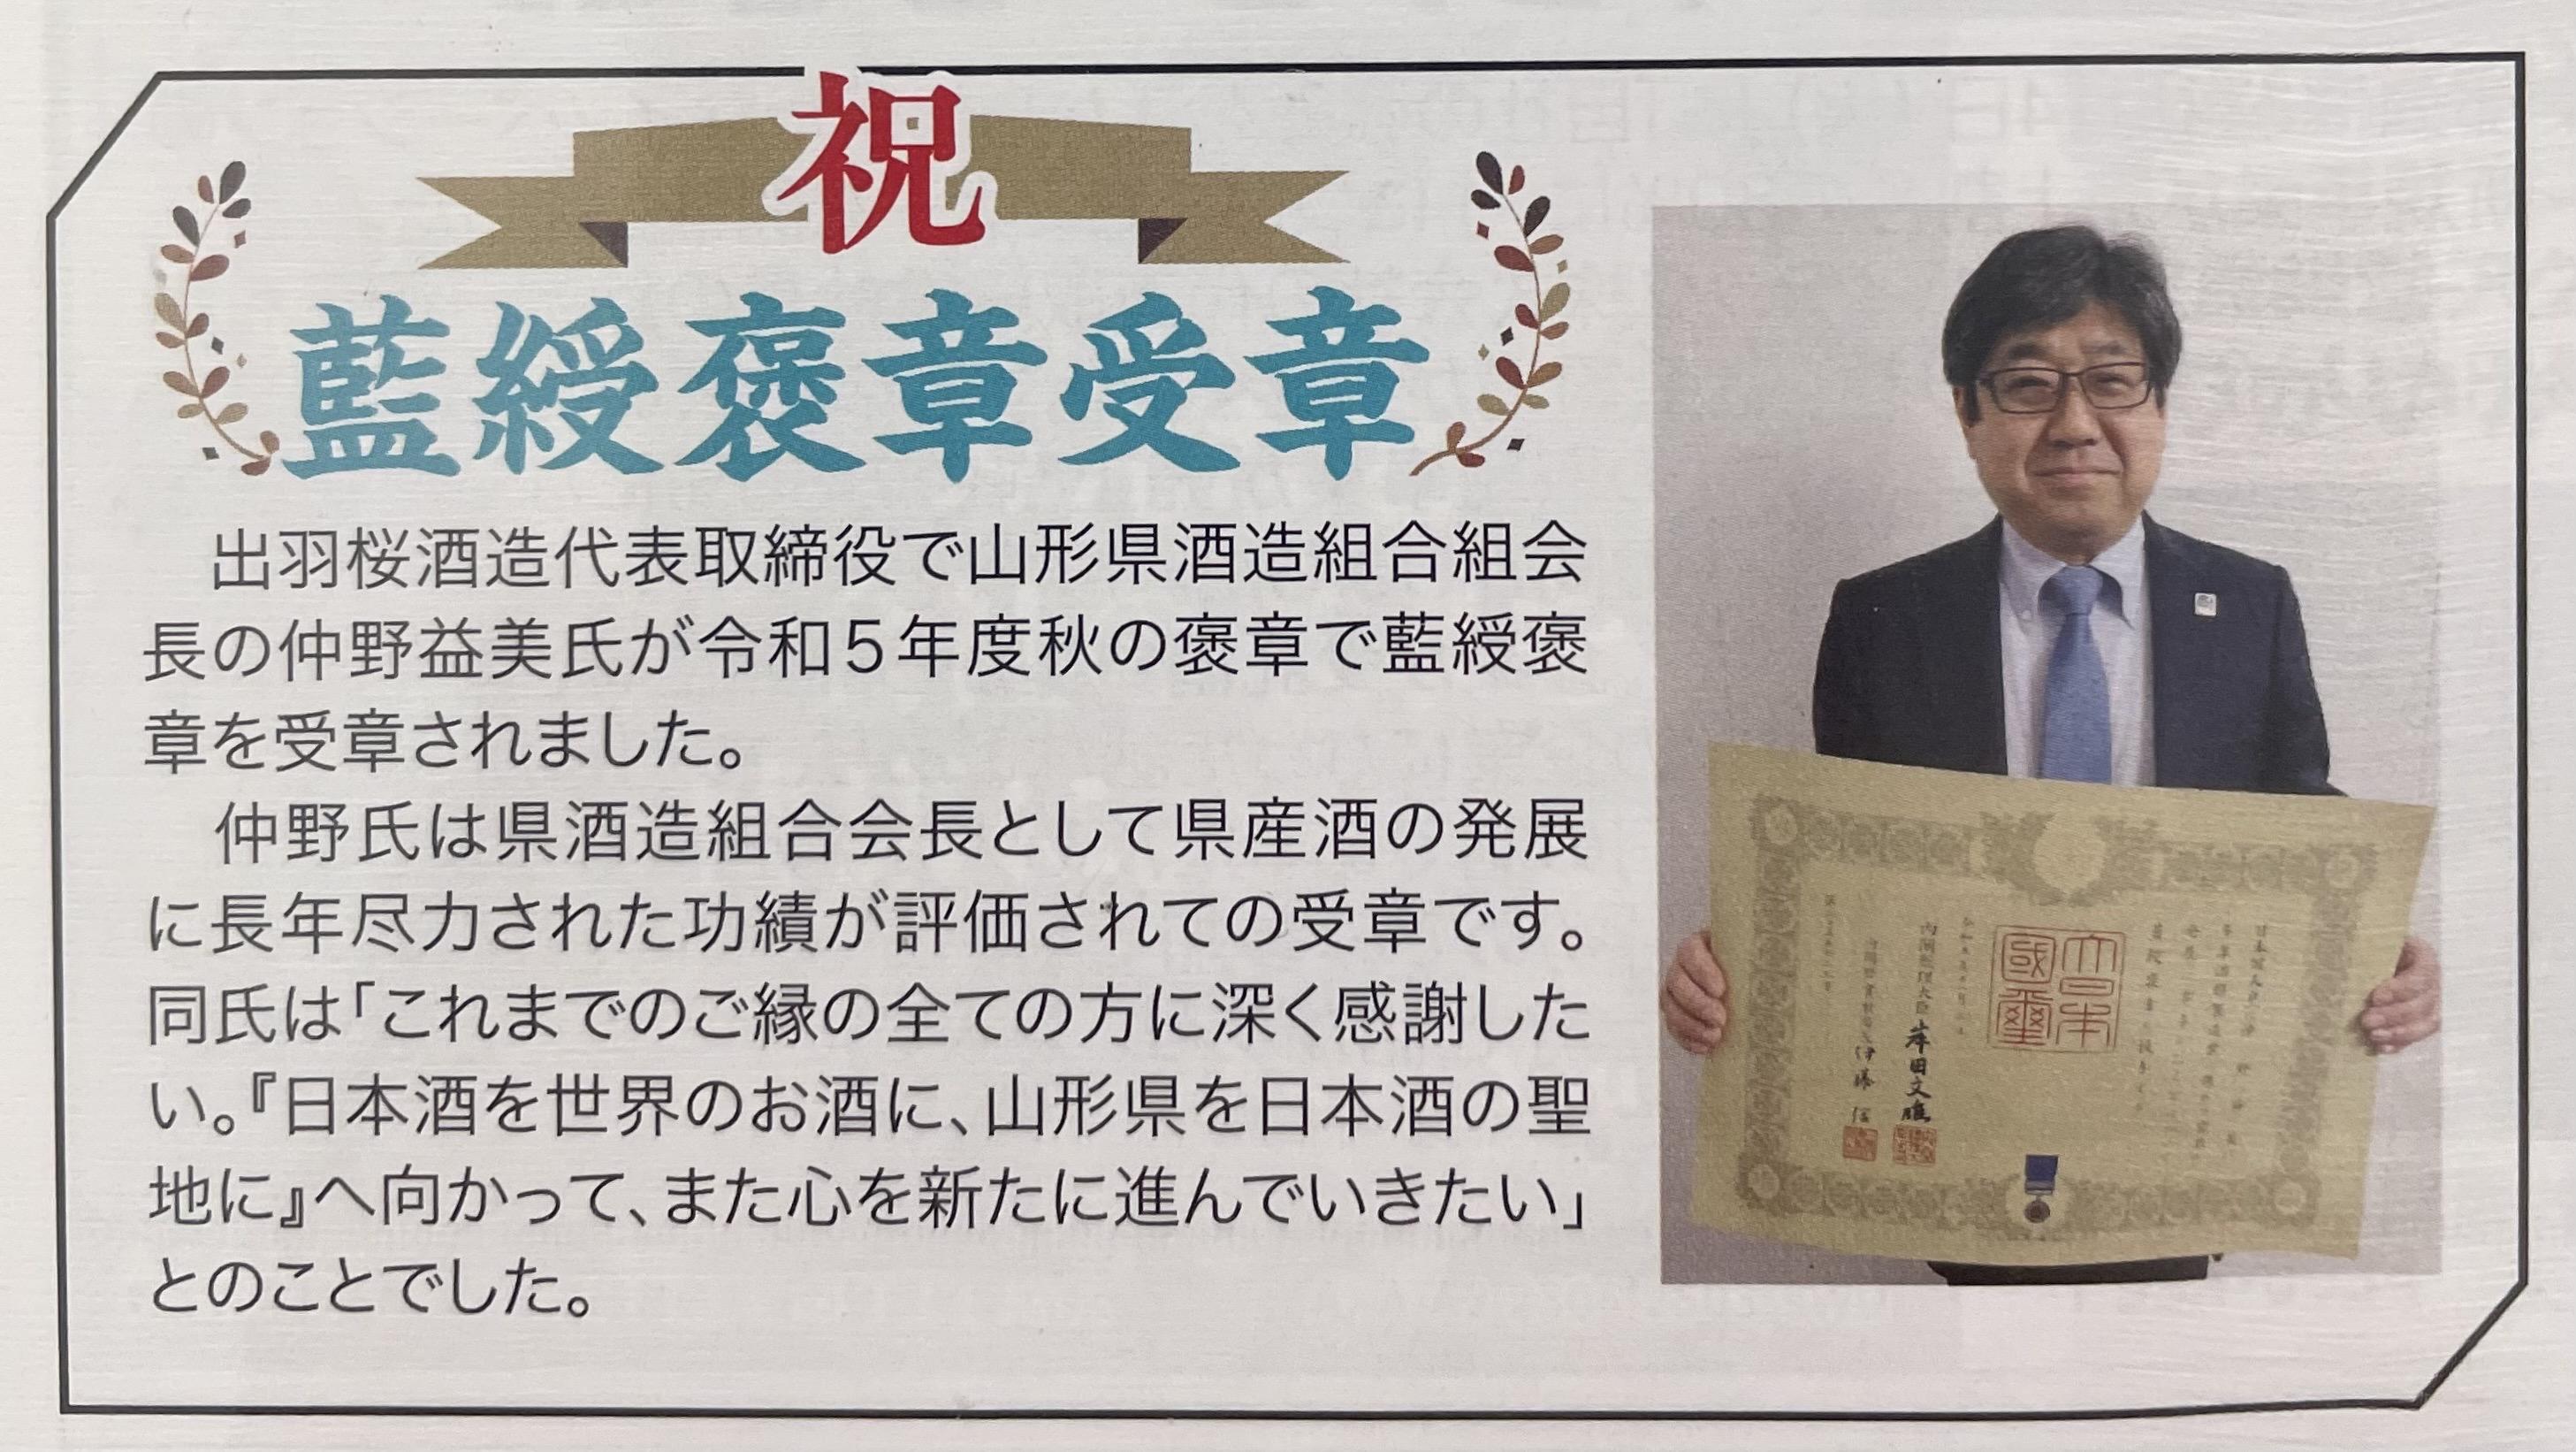 祝
藍綬褒章受章
出羽桜酒造代表取締役で山形県酒造組合組会
長の仲野益美氏が令和5年度秋の褒章で藍綬褒
章を受章されました。
仲野氏は県酒造組合会長として県産酒の発展
に長年尽力された功績が評価されての受章です。
同氏は「これまでのご縁の全ての方に深く感謝した
い。『日本酒を世界のお酒に、山形県を日本酒の聖
地に』へ向かって、また心を新たに進んでいきたい」
とのことでした。
大日本
國璽
内閣総理大臣 岸田文雄